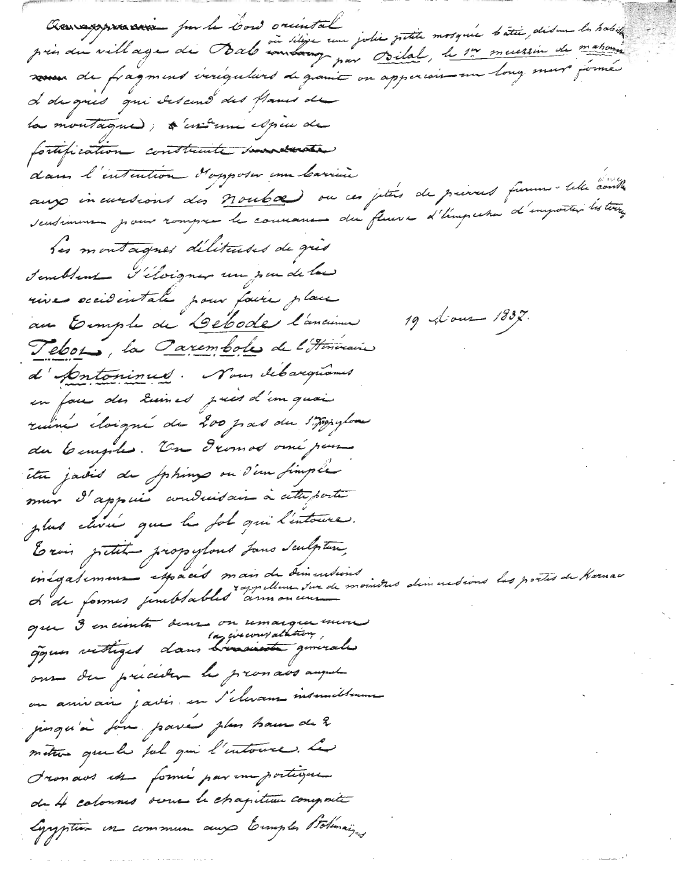 sur le bord oriental
près du village de Bab où s'élève une jolie petite mosquée bâtie, disent les habit
par Bilal, le 1er muezzin de mahom
de fragment irréguliers de granit on apperçoit un long mur formé
& de grès qui descend des flancs de
la montagne; c'est une espèce de
fortification construite
dans l'intention d'opposer une barrière
aux incursions des Noubæ ou ces jetés de pierres furent-elle
seulement pour rompre le courant du fleuve & l'empecher d'emporter les terres
Les montagnes déliteuses de grès
semblent s'éloigner un peu de la
rive occidentale pour faire place
au Temple de Debode l'ancienne
19 Aout 1837.
Tebot, la Parembole de l'Itinéraire
d'Antoninus. Nous débarquâmes
en face des Ruines près d'un quai
ruiné éloigné de 200 pas du 1er propylone
du temple. Un Dromos orné peut
être jadis de Sphinx ou d'un simple
mur d'appui conduisait à cette porte
plus élevée que le sol qui l'entoure.
Trois petits propylons sans sculpture,
inégalement espacés mais de dimensions
& de formes semblables rappellent sur de moindres dimensions les portes de Karnac
annoncent
que 3 enceintes dont on remarque encore
qques vestiges dans la circonvalation générale
ont du précéder le pronaos auquel
on arrivait jadis en s'élevant insensiblement
jusqu'à son pavé plus haut de 2
mètres que le sol qui l'entoure. Le
Pronaos est formé par un portique
de 4 colonnes dont le chapiteau composite
Egyptien est commun aux Temples Ptolémaïques